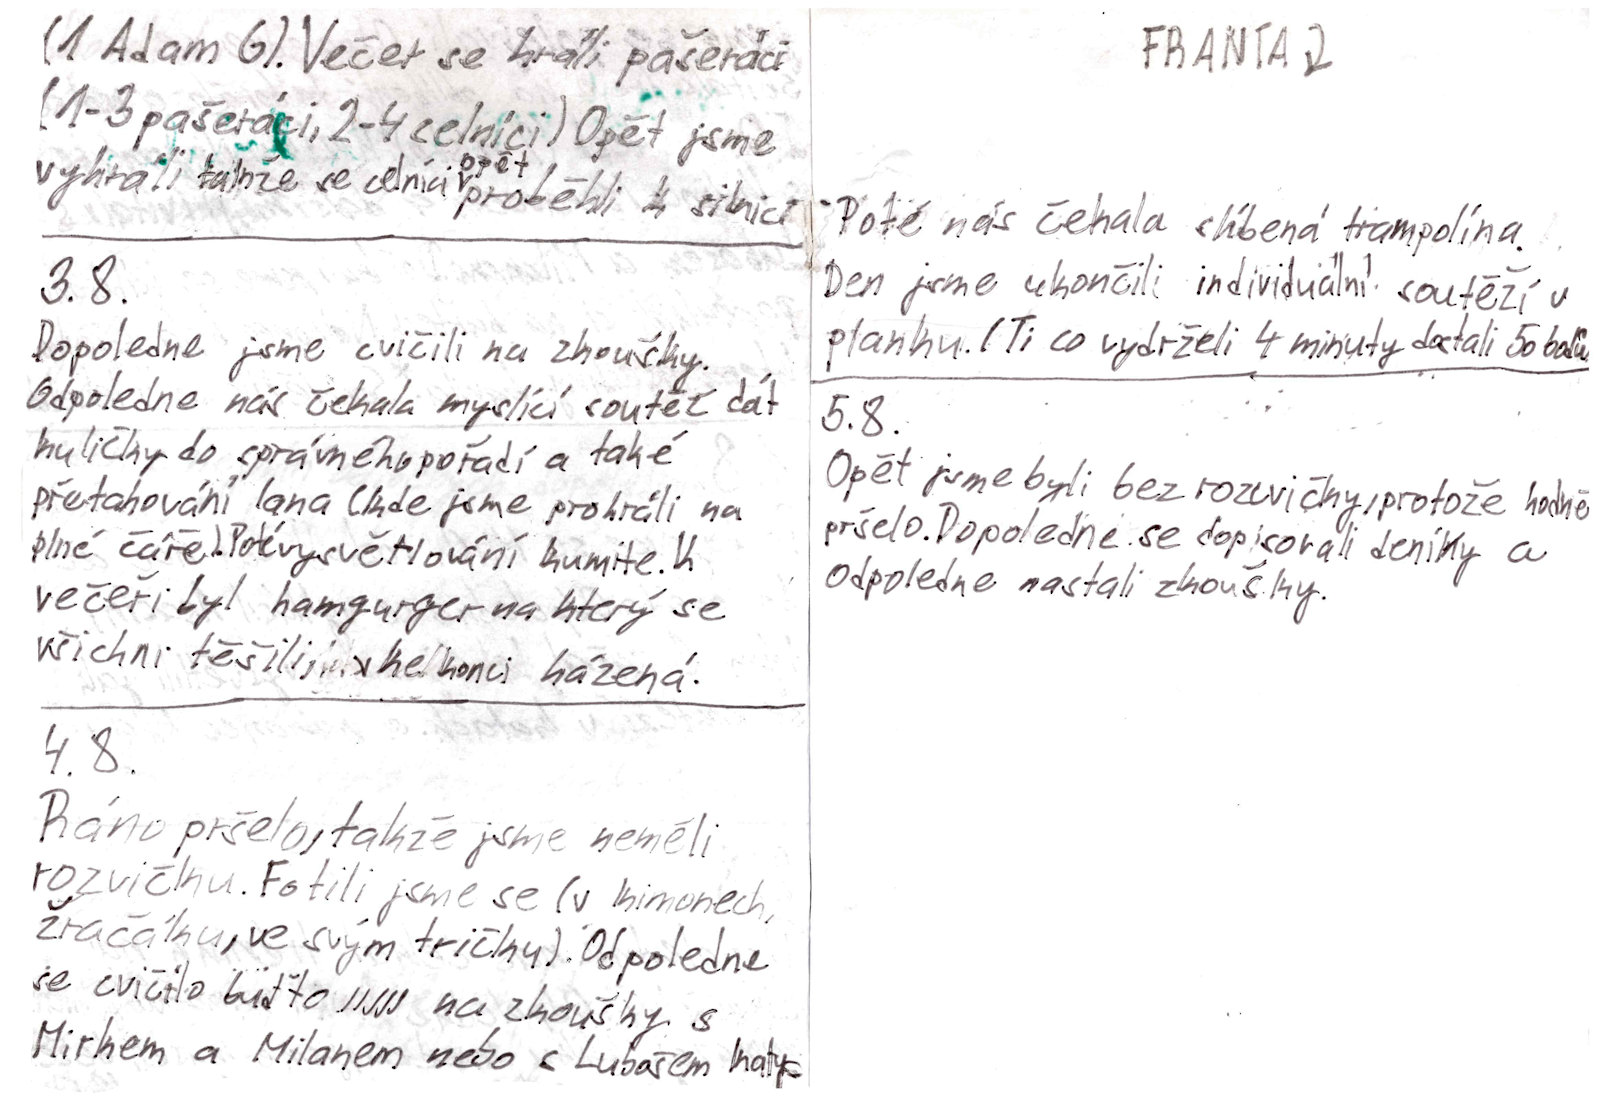 (1 Adam G). Večer se hráli pašeráci
(1-3 pašeráci, 2-4 celníci) Opět jsme
vyhráli takže se celníci opět proběhli k silnici
3.8.
Dopoledne jsme cvičili na zkoušky.
Odpoledne nás čekala myslící soutěž dát
kuličky do správného pořadí a také
přetahování lana (kde jsme prohráli na
plné čáře). Poté vysvětlování kumite. K
večeři byl hamgurger na který se
všichni těšili, ke konci házená.
4.8.
Ráno pršelo, takže jsme neměli
rozvičku. Fotili jsme se (v kimonech,
žračáku, ve svým tričku). Odpoledne
se cvičilo buďto na zkoušky s
Mirkem a Milanem nebo s Lubošem katy.
FRANTA 2
Poté nás čekala slíbená trampolína.
Den jsme ukončili individuální soutěží v
planku. (Ti co vydrželi 4 minuty dostali 50 bodů
5.8.
Opět jsme byli bez rozcvičky, protože hodně
pršelo. Dopoledne se dopisovali deníky a
odpoledne nastali zkoušky.